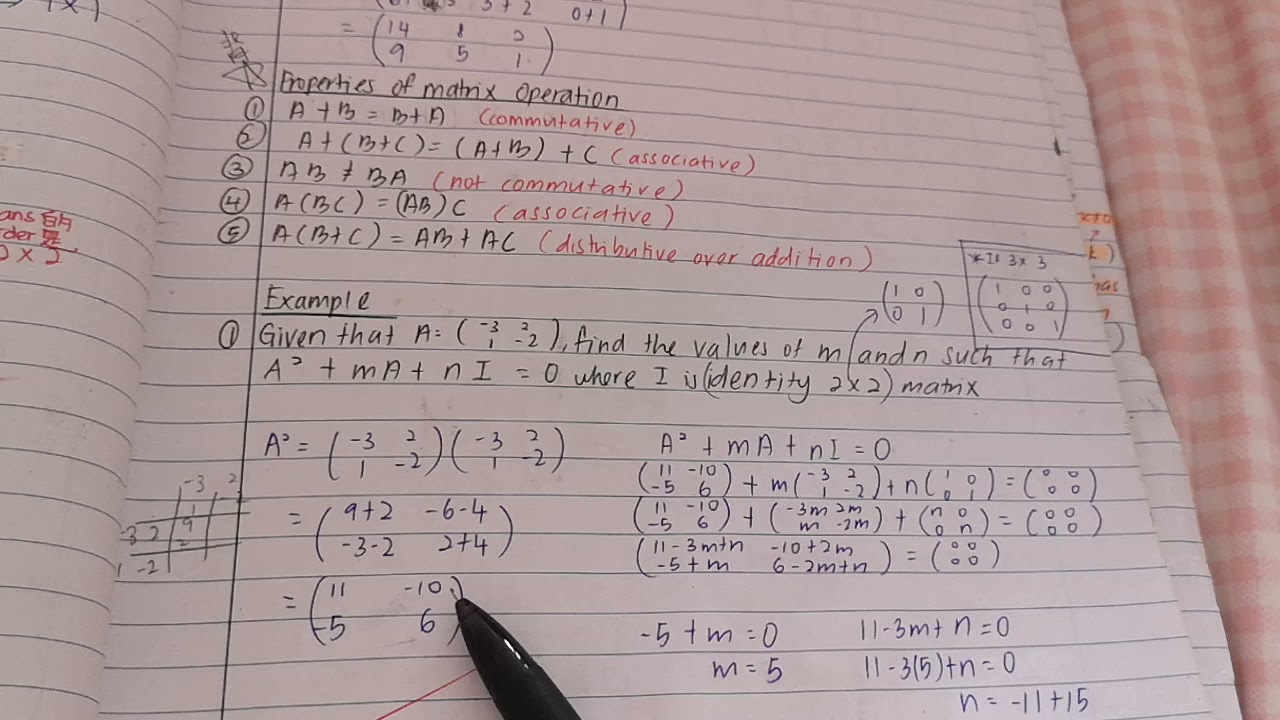 3+2 0+1
= (14 8 2
9 5 1)
Properties of matrix operation
① A + B = B + A (commutative)
② A + (B+C) = (A+B) + C (associative)
③ AB ≠ BA (not commutative)
④ A(BC) = (AB)C (associative)
⑤ A(B+C) = AB + AC (distributive over addition)
ans 的
der 是
2 × 2
*If 3x3
(1 0 0
0 1 0
0 0 1)
(1 0
0 1)
Example
① Given that A = (-3 2
1 -2), find the values of m and n such that
A² + mA + nI = 0 where I is (identity 2x2) matrix
A² = (-3 2
1 -2) (-3 2
1 -2)
= (9+2 -6-4
-3-2 2+4)
= (11 -10
-5 6)
-3 2
1
-3 2 9
1 -2
A² + mA + nI = 0
(11 -10
-5 6) + m(-3 2
1 -2) + n(1 0
0 1) = (0 0
0 0)
(11 -10
-5 6) + (-3m 2m
m -2m) + (n 0
0 n) = (0 0
0 0)
(11-3m+n -10+2m
-5+m 6-2m+n) = (0 0
0 0)
-5 + m = 0
m = 5
11-3m+n=0
11-3(5)+n=0
n = -11+15